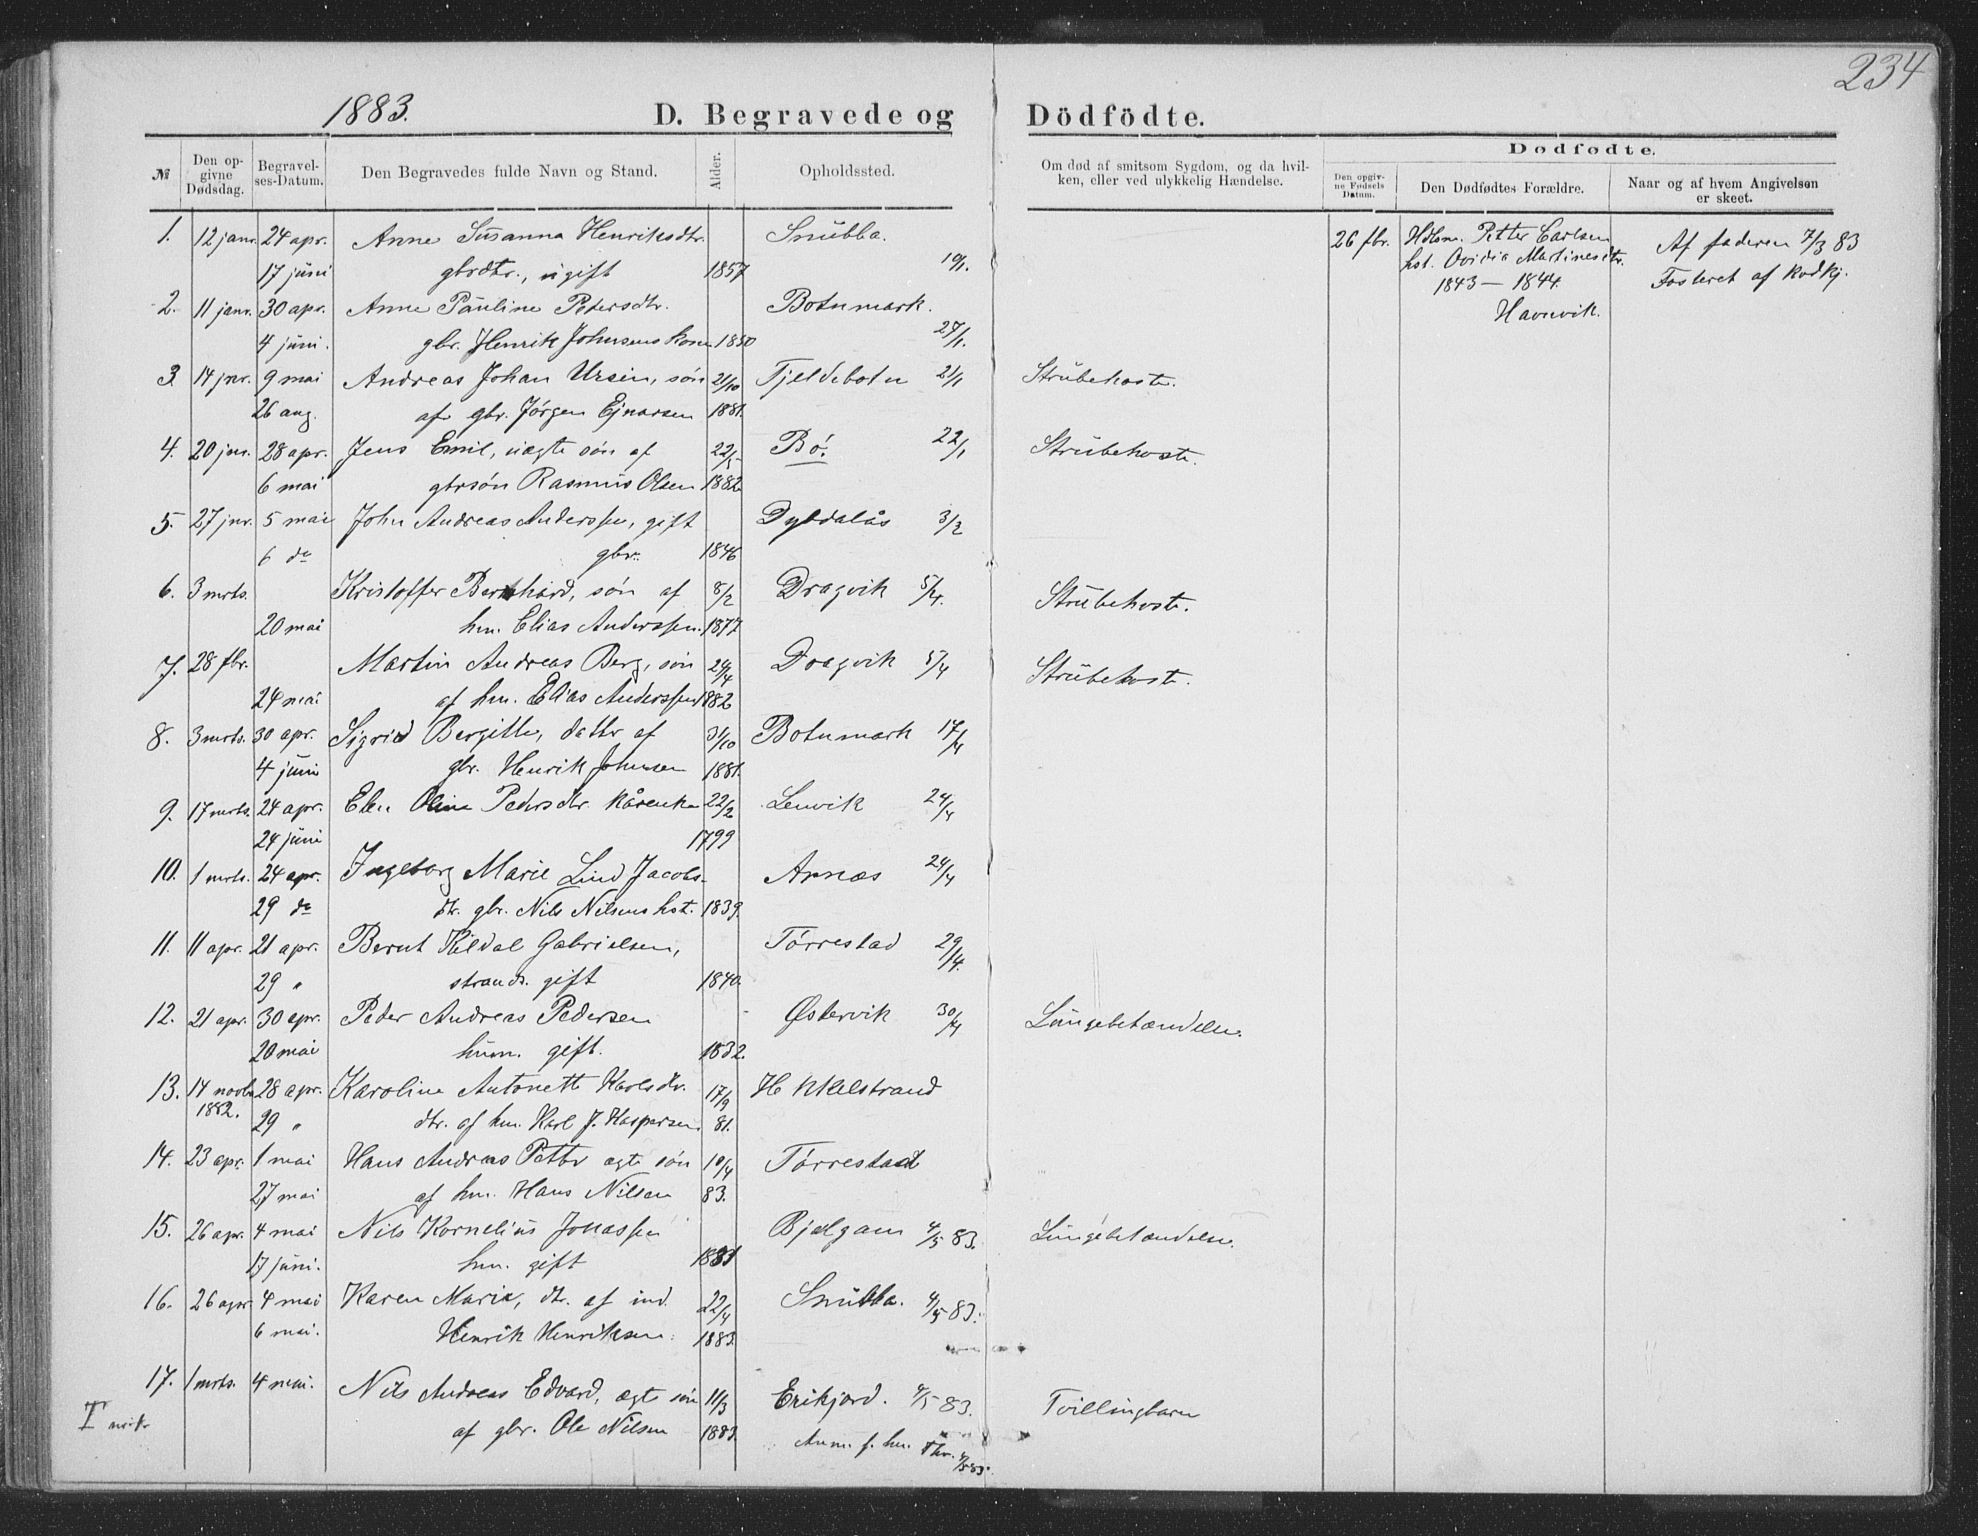 234
1883.
D. Begravede og Dödfödte.
№
Den op-
givne
Dødsdag.
Begravel-
ses-Datum.
Den Begravedes fulde Navn og Stand.
Alder.
Opholdssted.
Om død af smitsom Sygdom, og da hvil-
ken, eller ved ulykkelig Hændelse.
Dødfødte.
Den opgiv-
ne Fødsels
Datum.
Den Dødfødtes Forældre.
Naar og af hvem Angivelsen
er skeet.
1. 12 janr. 24 apr. Anne Susanna Henriksdtr. Snubba.
17 juni gbrdtr., ugift 1857 19/1.
26 fbr. Hdlsm. Petter Carlsen Af faderen 7/3 83
hst. Ovidia Martinesdtr. Fosteret af kodkj.
1843 – 1844.
Havnvik.
2. 11 janr. 30 apr. Anne Pauline Petersdtr. Botnmark.
4 juni. gbr. Henrik Johnsens kone 1850 27/1.
3. 14 jnr. 9 mai Andreas Johan Ursin, søn 21/10 Tjeldebotn 21/1 Strubehoste.
26 aug. af gbr. Jörgen Ejnarsen 1881.
4. 20 jnr. 28 apr. Jens Emil, uægte søn af 22/5 Bö. 22/1 Strubehoste.
6 mai gbrsön Rasmus Olsen 1882
5. 27 jnr. 5 mai John Andreas Anderssen, gift Dybdalås 3/2
6 do gbr. 1846
6. 3 mrts. Kristoffer Bernhard, sön af 8/2 Dragvik 5/4. Strubehoste.
20 mai hm. Elias Anderssen. 1877
7. 28 fbr. Martin Andreas Berg, sön 24/4 Dragvik 5/4 Strubehoste.
24 mai af hm. Elias Anderssen 1882
8. 3 mrts. 30 apr. Sigrid Bergitte, datter af 31/10 Botnmark 17/4
4 juni gbr. Henrik Johnsen 1881.
9. 17 mrts. 24 apr. Elen Oline Pedersdtr. kårenke 22/2 Lenvik 24/4
24 juni 1799
10. 1 mrts. 24 apr. Ingeborg Marie Lind Jacobs- Arnæs 24/4
29 do dtr. gbr. Nils Nilsens hst. 1839.
11. 11 apr. 21 apr. Bernt Kildal Gabrielsen, Törrestad 29/4.
29 " strands. gift 1840.
12. 21 apr. 30 apr. Peder Andreas Pedersen Østervik 30/4 Lungebetændelse.
20 mai hum. gift. 1832.
13. 14 novb. 28 apr. Karoline Antonette Karlsdtr. 17/9
1882. 29 " dtr. af hm. Karl J. Kaspersen. 81.
14. 23 apr. 1 mai Hans Andreas Petter ægte sön 10/4 Törrestad
27 mai af hm. Hans Nilsen 83.
15. 26 apr. 4 mai Nils Kornelius Jonassen Bjelgam 4/5 83. Lungebetændelse.
17 juni. hm. gift
16. 26 apr. 4 mai Karen Marie, dtr. af ind. 22/4 Snubba. 4/5 83.
6 mai. Henrik Henriksen. 1883.
17. 1 mrts. 4 mai. Nils Andreas Edvard, ægte sön 11/3 Erikjord. 4/5 83. Tvillingbarn
af gbr. Ole Nilsen 1883.
Anm. f. hm.